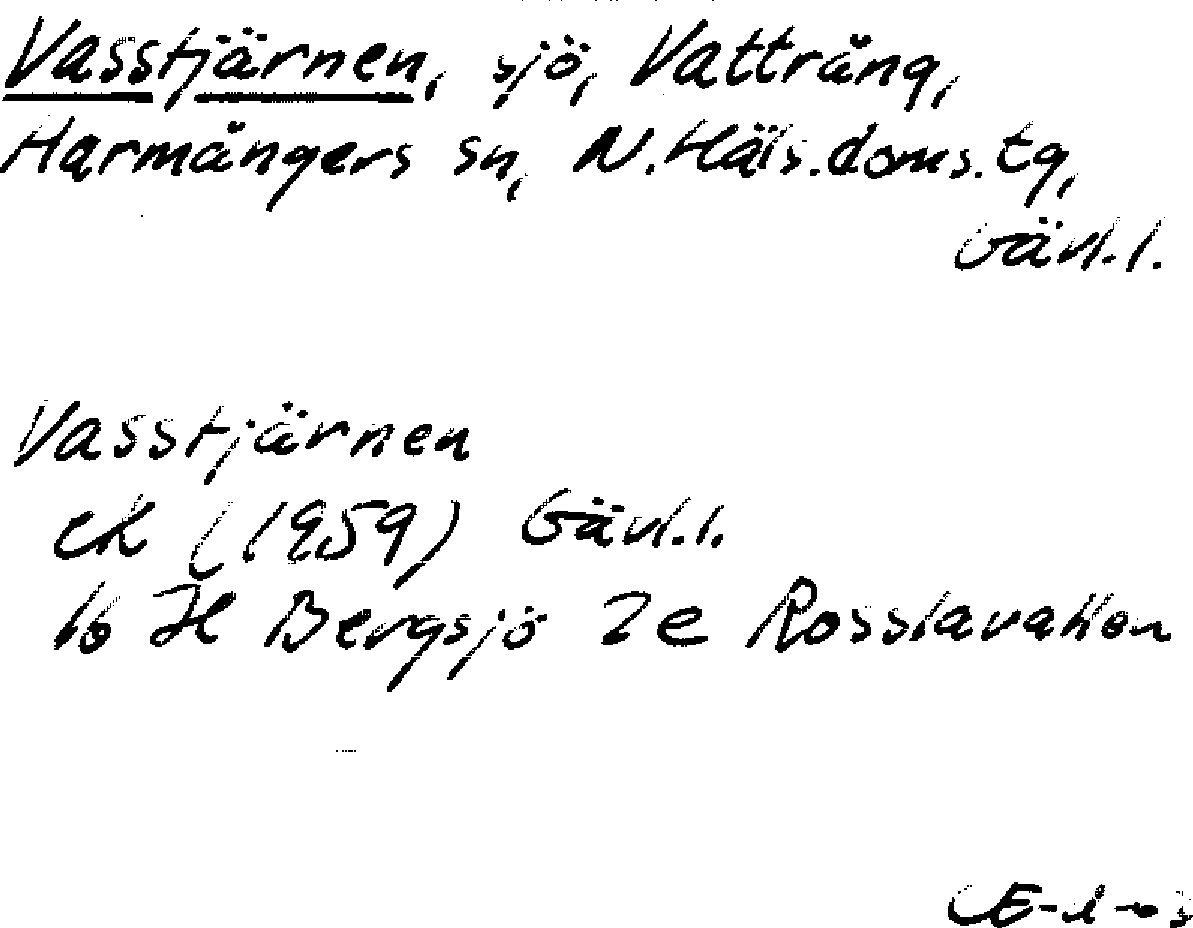 Vasstjärnen, sjö, Vattrång,
Harmångers sn, N.Häls.doms.tg,
Gävl.l.
Vasstjärnen
ek (1959) Gävl.l.
16 H Bergsjö 2e Rosslavallen